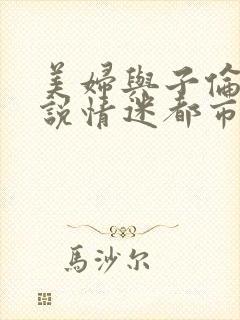 美婦與子倫
說情迷都市
馬沙尔